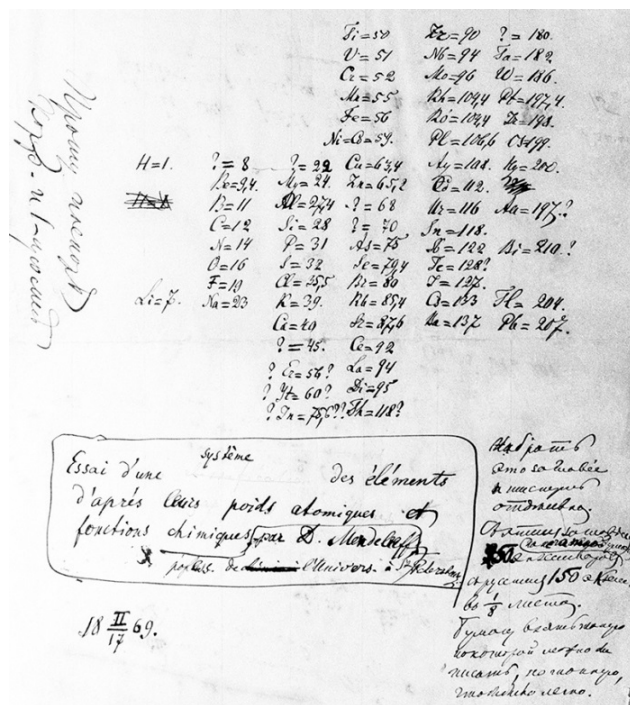 Ti=50 Zr=90 ?=180.
V=51 Nb=94 Ta=182.
Cr=52 Mo=96 W=186.
Mn=55 Rh=104,4 Pt=197,4.
Fe=56 Ru=104,4 Ir=198.
Ni=Co=59. Pl=106,6 Os=199.
H=1. ?=8 ?=22 Cu=63,4 Ag=108. Hg=200.
Be=9,4 Mg=24. Zn=65,2 Cd=112.
B=11 Al=27,4 ?=68 Ur=116 Au=197?
C=12 Si=28 ?=70 Sn=118.
N=14 P=31 As=75 Sb=122 Bi=210?
O=16 S=32 Se=79,4 Te=128?
F=19 Cl=35,5 Br=80 J=127.
Li=7. Na=23 K=39. Rb=85,4 Cs=133 Tl=204.
Ca=40 Sr=87,6 Ba=137 Pb=207.
?=45. Ce=92
? Er=56? La=94
? Yt=60? Di=95
? In=75,6?? Th=118?
Прошу
Essai d'une système des éléments
d'après leurs poids atomiques et
fonctions chimiques par D. Mendeleeff
profess. de l'Univers. à St Petersbourg
18 II/17 69.
Набрать
это заглавие
150
в 1/8 листа.
бумагу взять такую
на которой можно бы
писать,